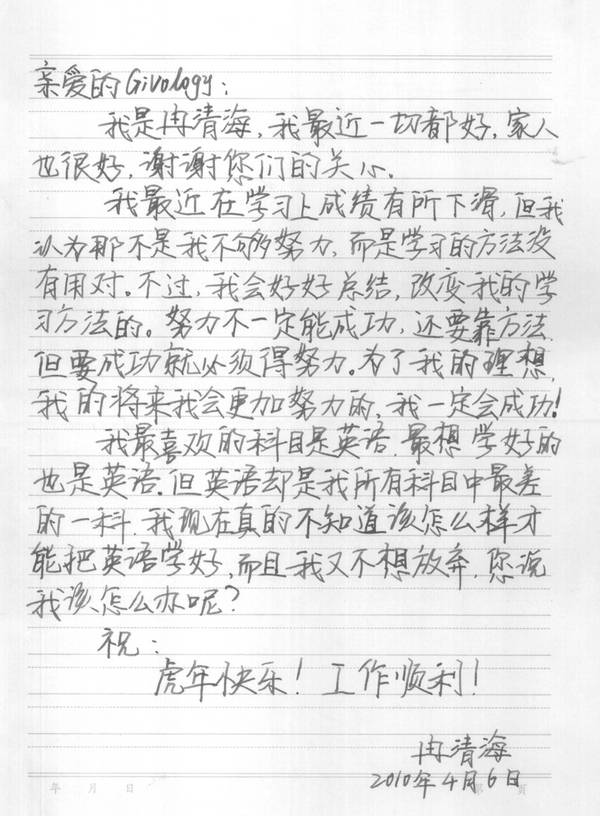 亲爱的Givology:
我是冉清海,我最近一切都好,家人
也很好,谢谢您们的关心.
我最近在学习上成绩有所下滑,但我
认为那不是我不够努力,而是学习的方法没
有用对。不过,我会好好总结,改变我的学
习方法的。努力不一定能成功,还要靠方法.
但要成功就必须得努力。为了我的理想,
我的将来我会更加努力的,我一定会成功!
我最喜欢的科目是英语.最想学好的
也是英语.但英语却是我所有科目中最差
的一科.我现在真的不知道该怎么样才
能把英语学好,而且我又不想放弃.您说
我该怎么办呢?
祝:
虎年快乐!工作顺利!
冉清海
2010年4月6日
年 月 日 第 页